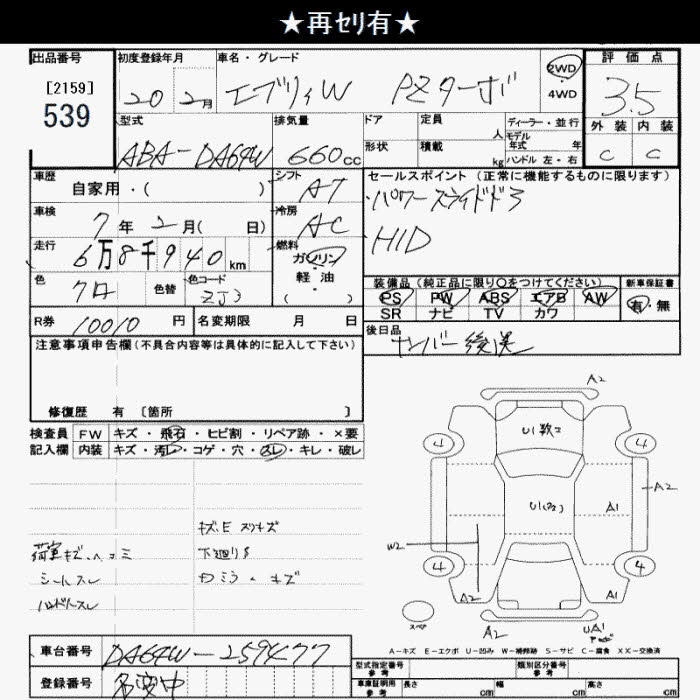 ★再ｾﾘ有★
出品番号
[2159]
539
初度登録年月
20年 2月
車名・グレード
エブリィW PZターボ
2WD
4WD
評価点
3.5
外装 内装
C C
型式
ABA-DA64W
排気量
660cc
ドア
形状
定員
人
積載
kg
ディーラー・並行
モデル
年式 年
ハンドル 左・右
車歴
自家用・( )
シフト
AT
セールスポイント (正常に機能するものに限ります)
パワースライドドア
HID
車検
7年 2月( 日)
冷房
AC
走行
6万8千940km
燃料
ガソリン
軽油
( )
色
クロ
色替
色コード
ZJ3
装備品(純正品に限り○をつけてください)
PS PW ABS エアB AW
SR ナビ TV カワ
新車保証書
有・無
R券 10010円
名変期限 月 日
後日品
ナンバー後渡
注意事項申告欄(不具合内容等は具体的に記入して下さい)
修復歴 有 〔箇所 〕
検査員 FW キズ・飛石・ヒビ割・リペア跡・×要
記入欄 内装 キズ・汚レ・コゲ・穴・スレ・キレ・破レ
キズ.E スリキズ
荷室キズ.ヘコミ
下廻りS
シートスレ
ハンドルスレ
A2
U1数コ
4 4
A2
U1
A1
W2
4 4
A2
A1
スペア
A2
UA1
A−キズ E−エクボ U−凹ミ W−補修跡 S−サビ C−腐食 XX−交換済
車台番号 DA64W-259477
登録番号 名変中
型式指定番号
参考
類別区分番号
参考
車庫証明用
参考
長さ cm 幅 cm 高さ cm